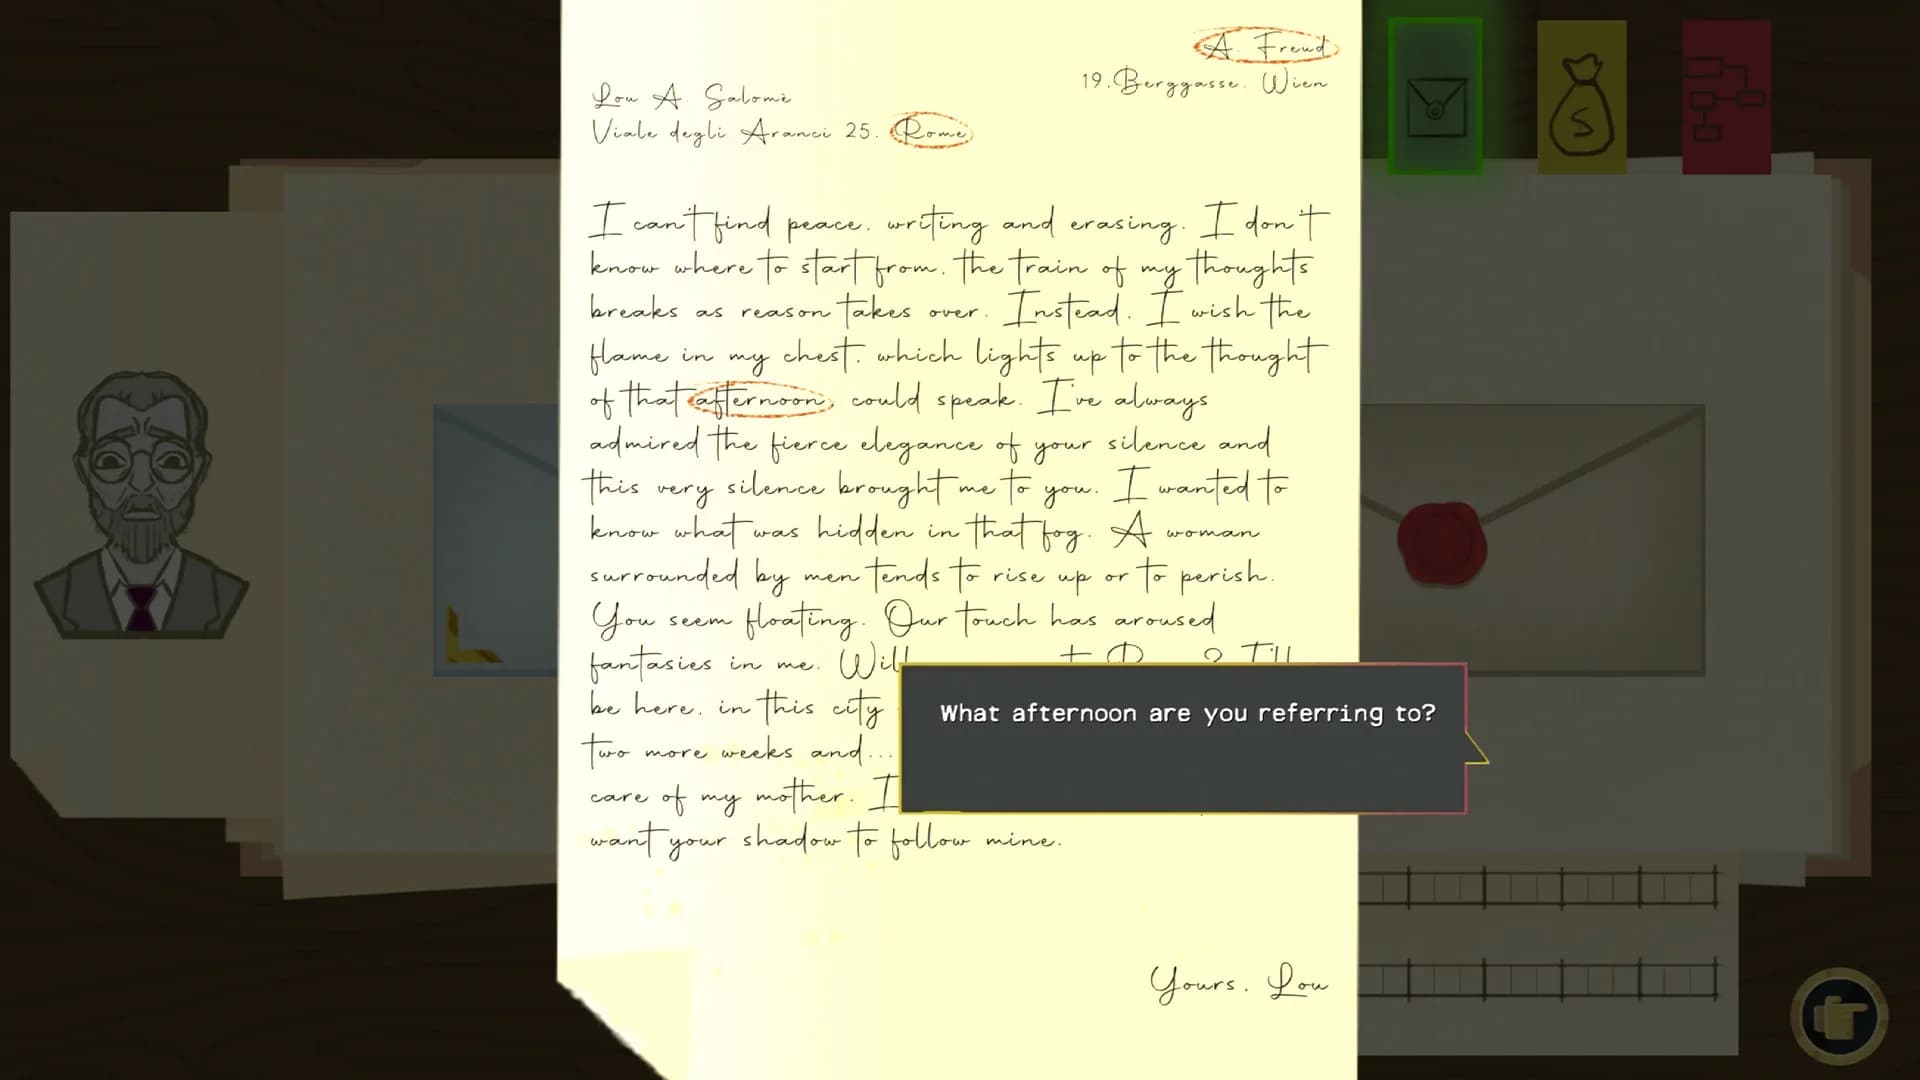 A. Freud
19. Berggasse. Wien
Lou A. Salomè
Viale degli Aranci 25. Rome
I can't find peace. writing and erasing. I don't
know where to start from. the train of my thoughts
breaks as reason takes over. Instead. I wish the
flame in my chest. which lights up to the thought
of that afternoon. could speak. I've always
admired the fierce elegance of your silence and
this very silence brought me to you. I wanted to
know what was hidden in that fog. A woman
surrounded by men tends to rise up or to perish.
You seem floating. Our touch has aroused
fantasies in me. I'll
be here. in this city
two more weeks and...
care of my mother. I
want your shadow to follow mine.
Yours. Lou
What afternoon are you referring to?
S